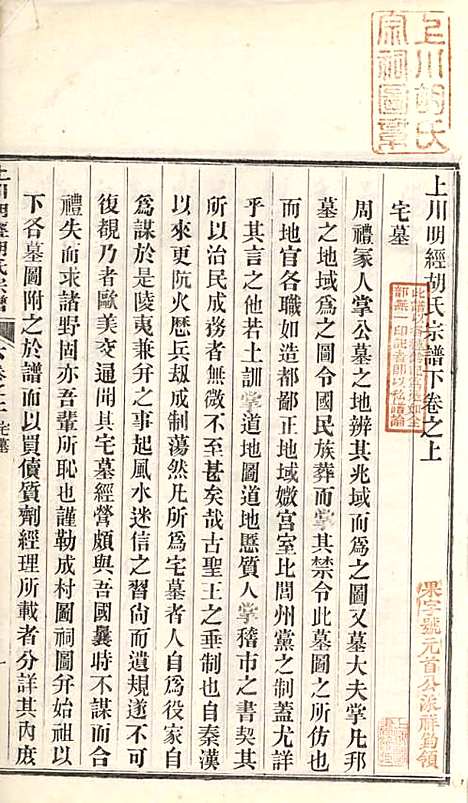 上川胡氏
宗祠圖章
上川明經胡氏宗譜下卷之上
宅墓
周禮冢人掌公墓之地辨其兆域而爲之圖又墓大夫掌凡邦
墓之地域爲之圖令國民族葬而掌其禁令此墓圖之所仿也
而地官各職如造都鄙正地域媺宮室比閭州黨之制蓋尤詳
乎其言之若土訓掌道地圖道地慝質人掌稽市之書契其
所以治民成務者無微不至甚矣哉古聖王之垂制也自秦漢
以來更阬火歷兵刼成制蕩然凡所爲宅墓者人自爲役家自
爲謀於是陵夷兼弁之事起風水迷信之習尙而遺規遂不可
復覩乃者歐美交通聞其宅墓經營頗與吾國曩時不謀而合
禮失而求諸野固亦吾輩所恥也謹勒成村圖祠圖弁始祖以
下各墓圖附之於譜而以買儥質劑經理所載者分詳其內庶
果字號元首公派祥鈞領
上川明經胡氏宗譜
下卷之上 宅墓
一